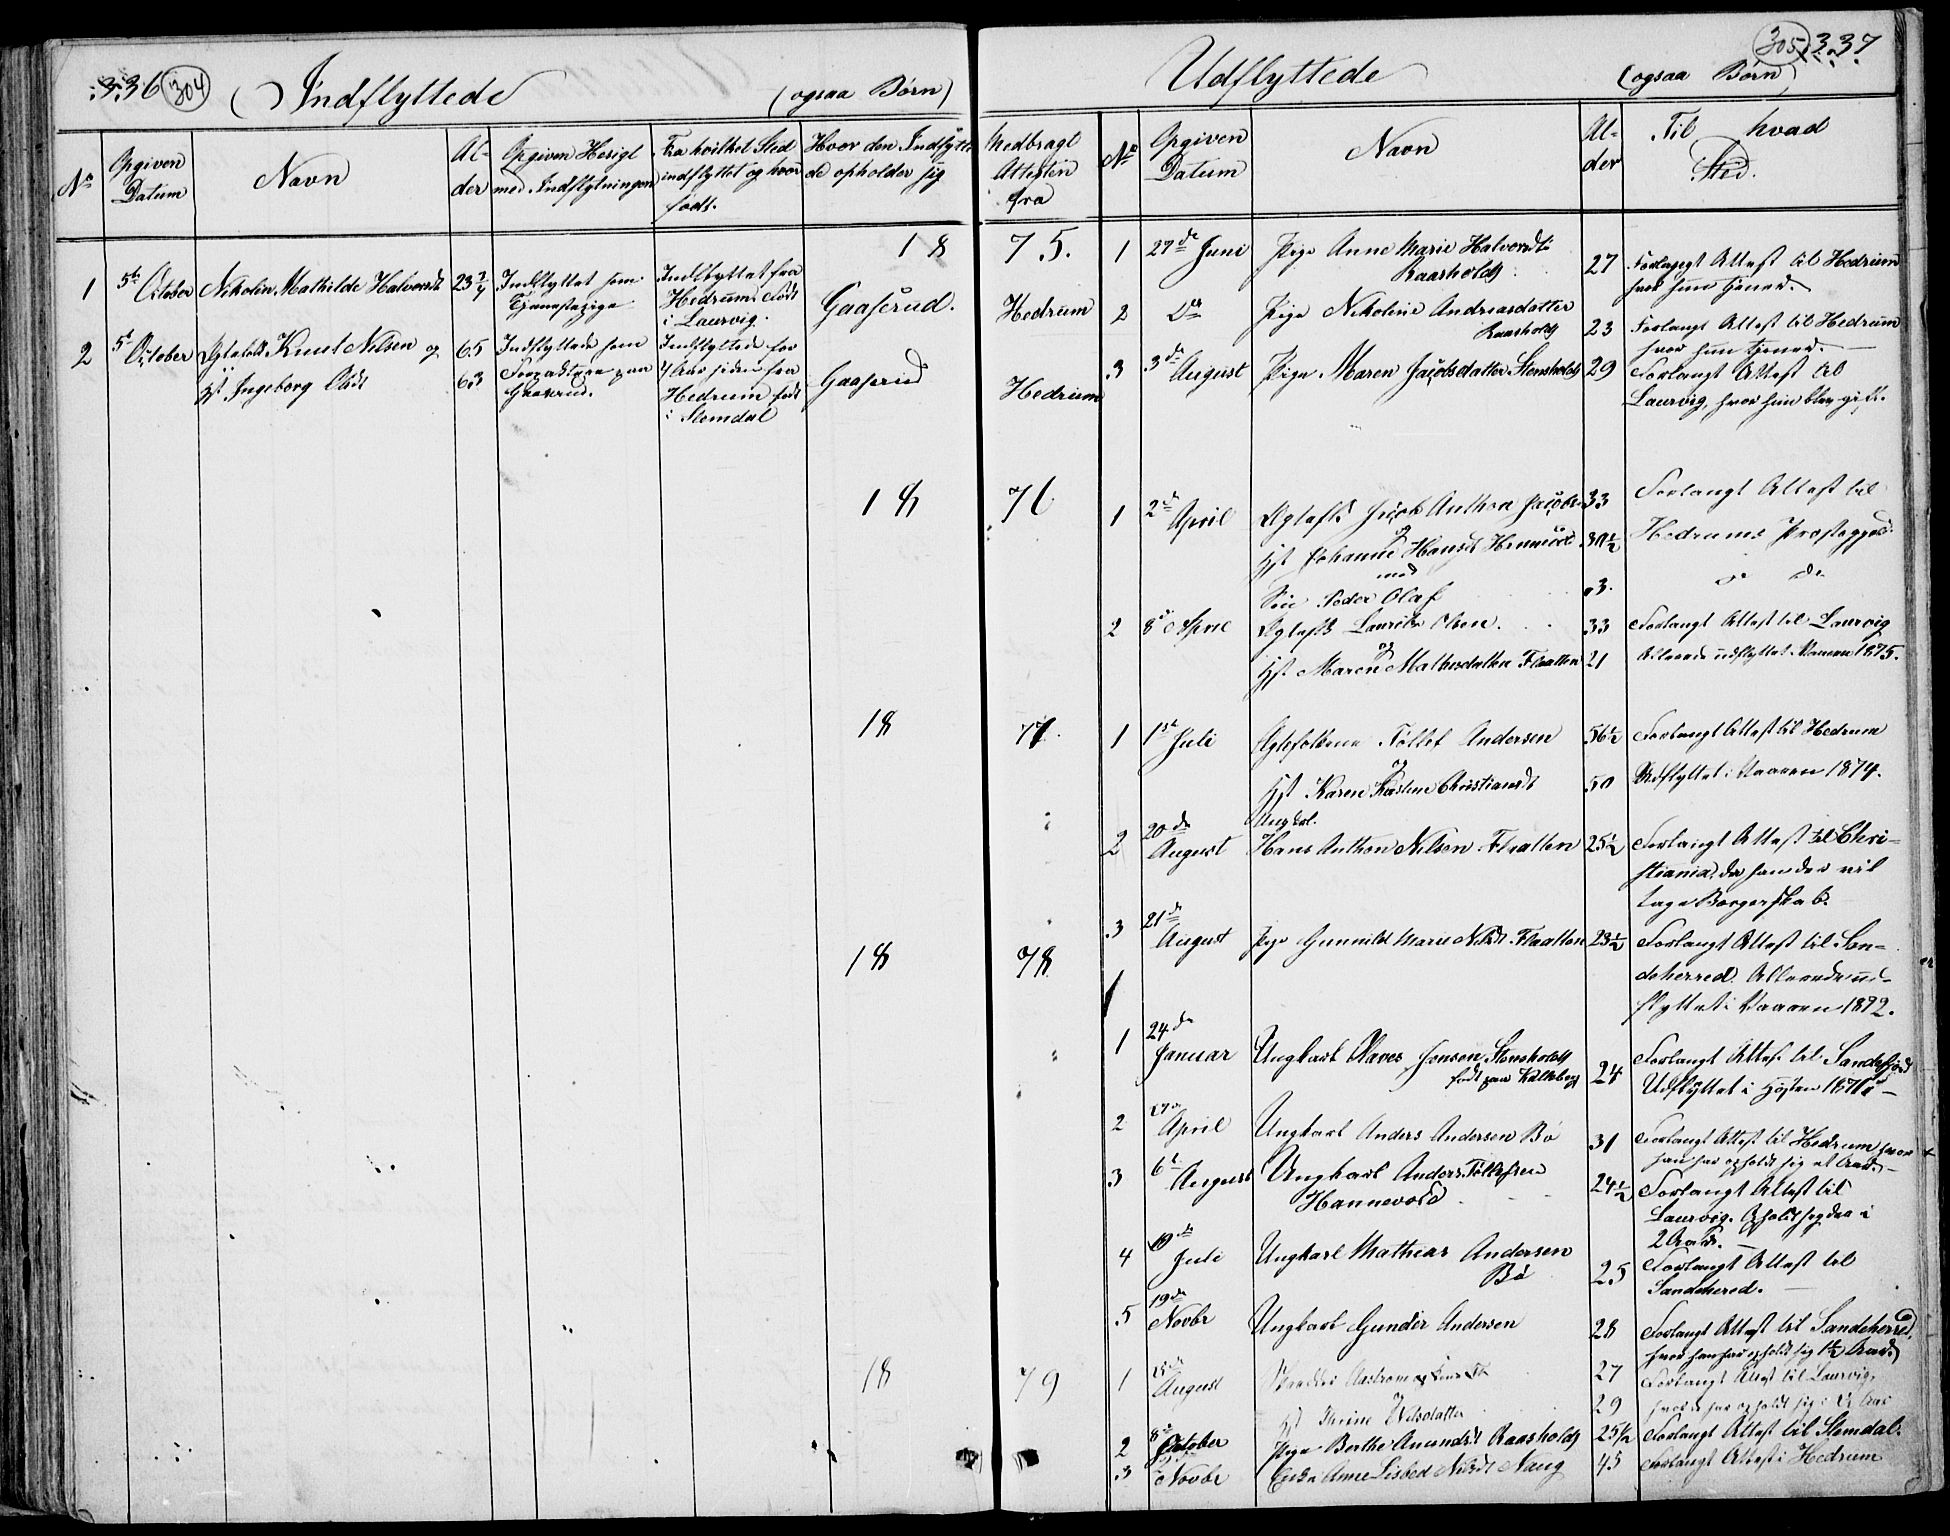 336 304 Indflyttede (ogsaa Børn)
No Opgiven Datum Navn Alder Opgiven Hesigt med Indflytningen Fra hvilket Sted indflyttet og hvor født. Hvor den Indflyttede opholder sig Medbragt Attesten fra
18 75.
1 5te October Nikolin Mathilde Halvorsdt 23 Indflyttet som Tjenestepige Indflyttet fra Hedrum, født i Laurvig. Gaaserud. Hedrum
2 5te October Ægtefolk Knut Nilsen og 65 Indflyttede som
Hst Ingeborg Olsdt 63 paa Gaaserud. Indflyttede for 4 Aar siden fra Hedrum født i Slemdal Gaaserud Hedrum
18 76
18 77.
18 78
18 79
Udflyttede (ogsaa Børn) 305 337
No Opgiven Datum Navn Alder Til hvad Sted.
1 27de Juni Pige Anne Marie Halvorsdt
Raasholdt 27 Forlangt Attest til Hedrum
hvor hun tjener.
2 Do Pige Nikoline Andreasdatter
Raasholdt 23 Forlangt Attest til Hedrum
hvor hun tjener.
3 3de August Pige Maren Jacobsdatter Stensholdt 29 Forlangt Attest til
Laurvig, hvor hun blev gift.
1 2de April Ægtefk Jacob Anthon Jacobs 33 Forlangt Attest til
og
Hst Johanne Hansdt 30½ Hedrums Præstegjeld
med
Søn Peder Olaf 3.
2 8de April Ægtefk Laurits Olsen. 33 Forlangt Attest til Laurvig
og
Hst Maren Mathisdatter Flaatten 21 Allerede udflyttet Vaaren 1875.
1 1ste Juli Ægtefolkene Tollef Andersen 56½ Forlangt Attest til Hedrum
og
Hst Karen Kirstine Christiansdt 50 Udflyttet i Vaaren 1874.
Ungkarl.
2 20de August Hans Anthon Nilsen Flaatten 25½ Forlangt Attest til Chri-
stiania, da han der vil
tage Borgerskab.
3 21de August Pige Gunnild Marie Nilsdt Flaatten 23½ Forlangt Attest til San-
deherred. Allerede ud-
flyttet i Vaaren 1872.
1 24de Januar Ungkarl Olaves Jensen Stensholdt
født paa 24 Forlangt Attest til Sandefjord
Udflyttet i Høsten
2 April Ungkarl Anders Andersen Bø 31 Forlangt Attest til Hedrum hvor
han har opholdt sig et Aar.
3 6te August Ungkarl Anders Tollefsen
Hannevold 24½ Forlangt Attest til
Laurvig. Opholdt sig der i
2 Aar.
4 Juli Ungkarl Mathias Andersen
Bø 25 Forlangt Attest til
Sandeherred.
5 19de Novbr Ungkarl Gunder Andersen 28 Forlangt Attest til Sandeherred,
hvor han har opholdt sig 1½ Aar.
1 15de August 27 Forlangt Attest til Laurvig,
Hst Nilsdatter 29 hvor de har opholdt sig i
2 8de October Pige Berthe Anundsdt Raasholdt 25½ Forlangt Attest til Slemdal.
3 Novbr Enke Anne Lisbed Nilsdt Haug 45 Forlangt Attest i Hedrum